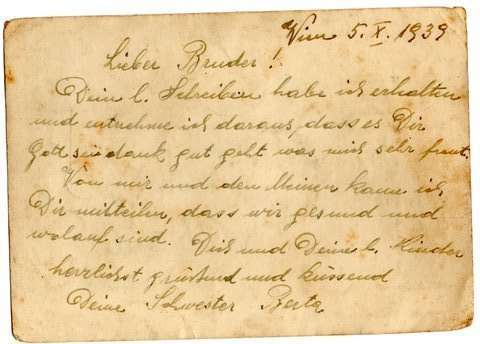 Wien 5. X. 1939
Lieber Bruder!
Dein l. Schreiben habe ich erhalten
und entnehme ich daraus, dass es Dir
Gott sei dank gut geht was mich sehr freut.
Von mir und den Meinen kann ich
Dir mitteilen, dass wir gesund und
wolauf sind. Dich und Deine l. Kinder
herzlichst grüssend und küssend
Deine Schwester Berta